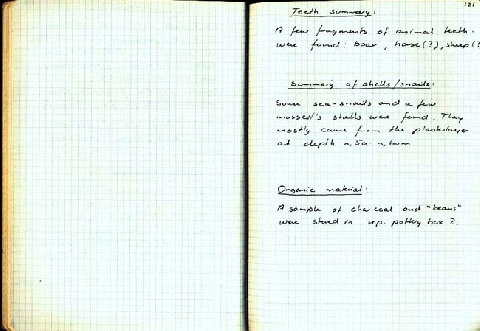 181
Teeth summary:
A few fragments of animal teeth
were found: boar, horse(?), sheep(?
Summary of shells/snails:
Some sea-snails and a few
mussell's shells were found. They
mostly came from the
at depth
Organic material:
A sample of charcoal and "beans"
were stored in w.p. pottery box 2.